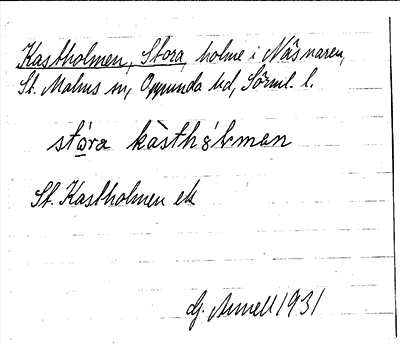 Kastholmen, Stora, holme i Näsnaren,
St. Malms sn, Oppunda hd, Sörml. l.
stòra kàsthólman
St. Kastholmen ek
G. Arnell 1931